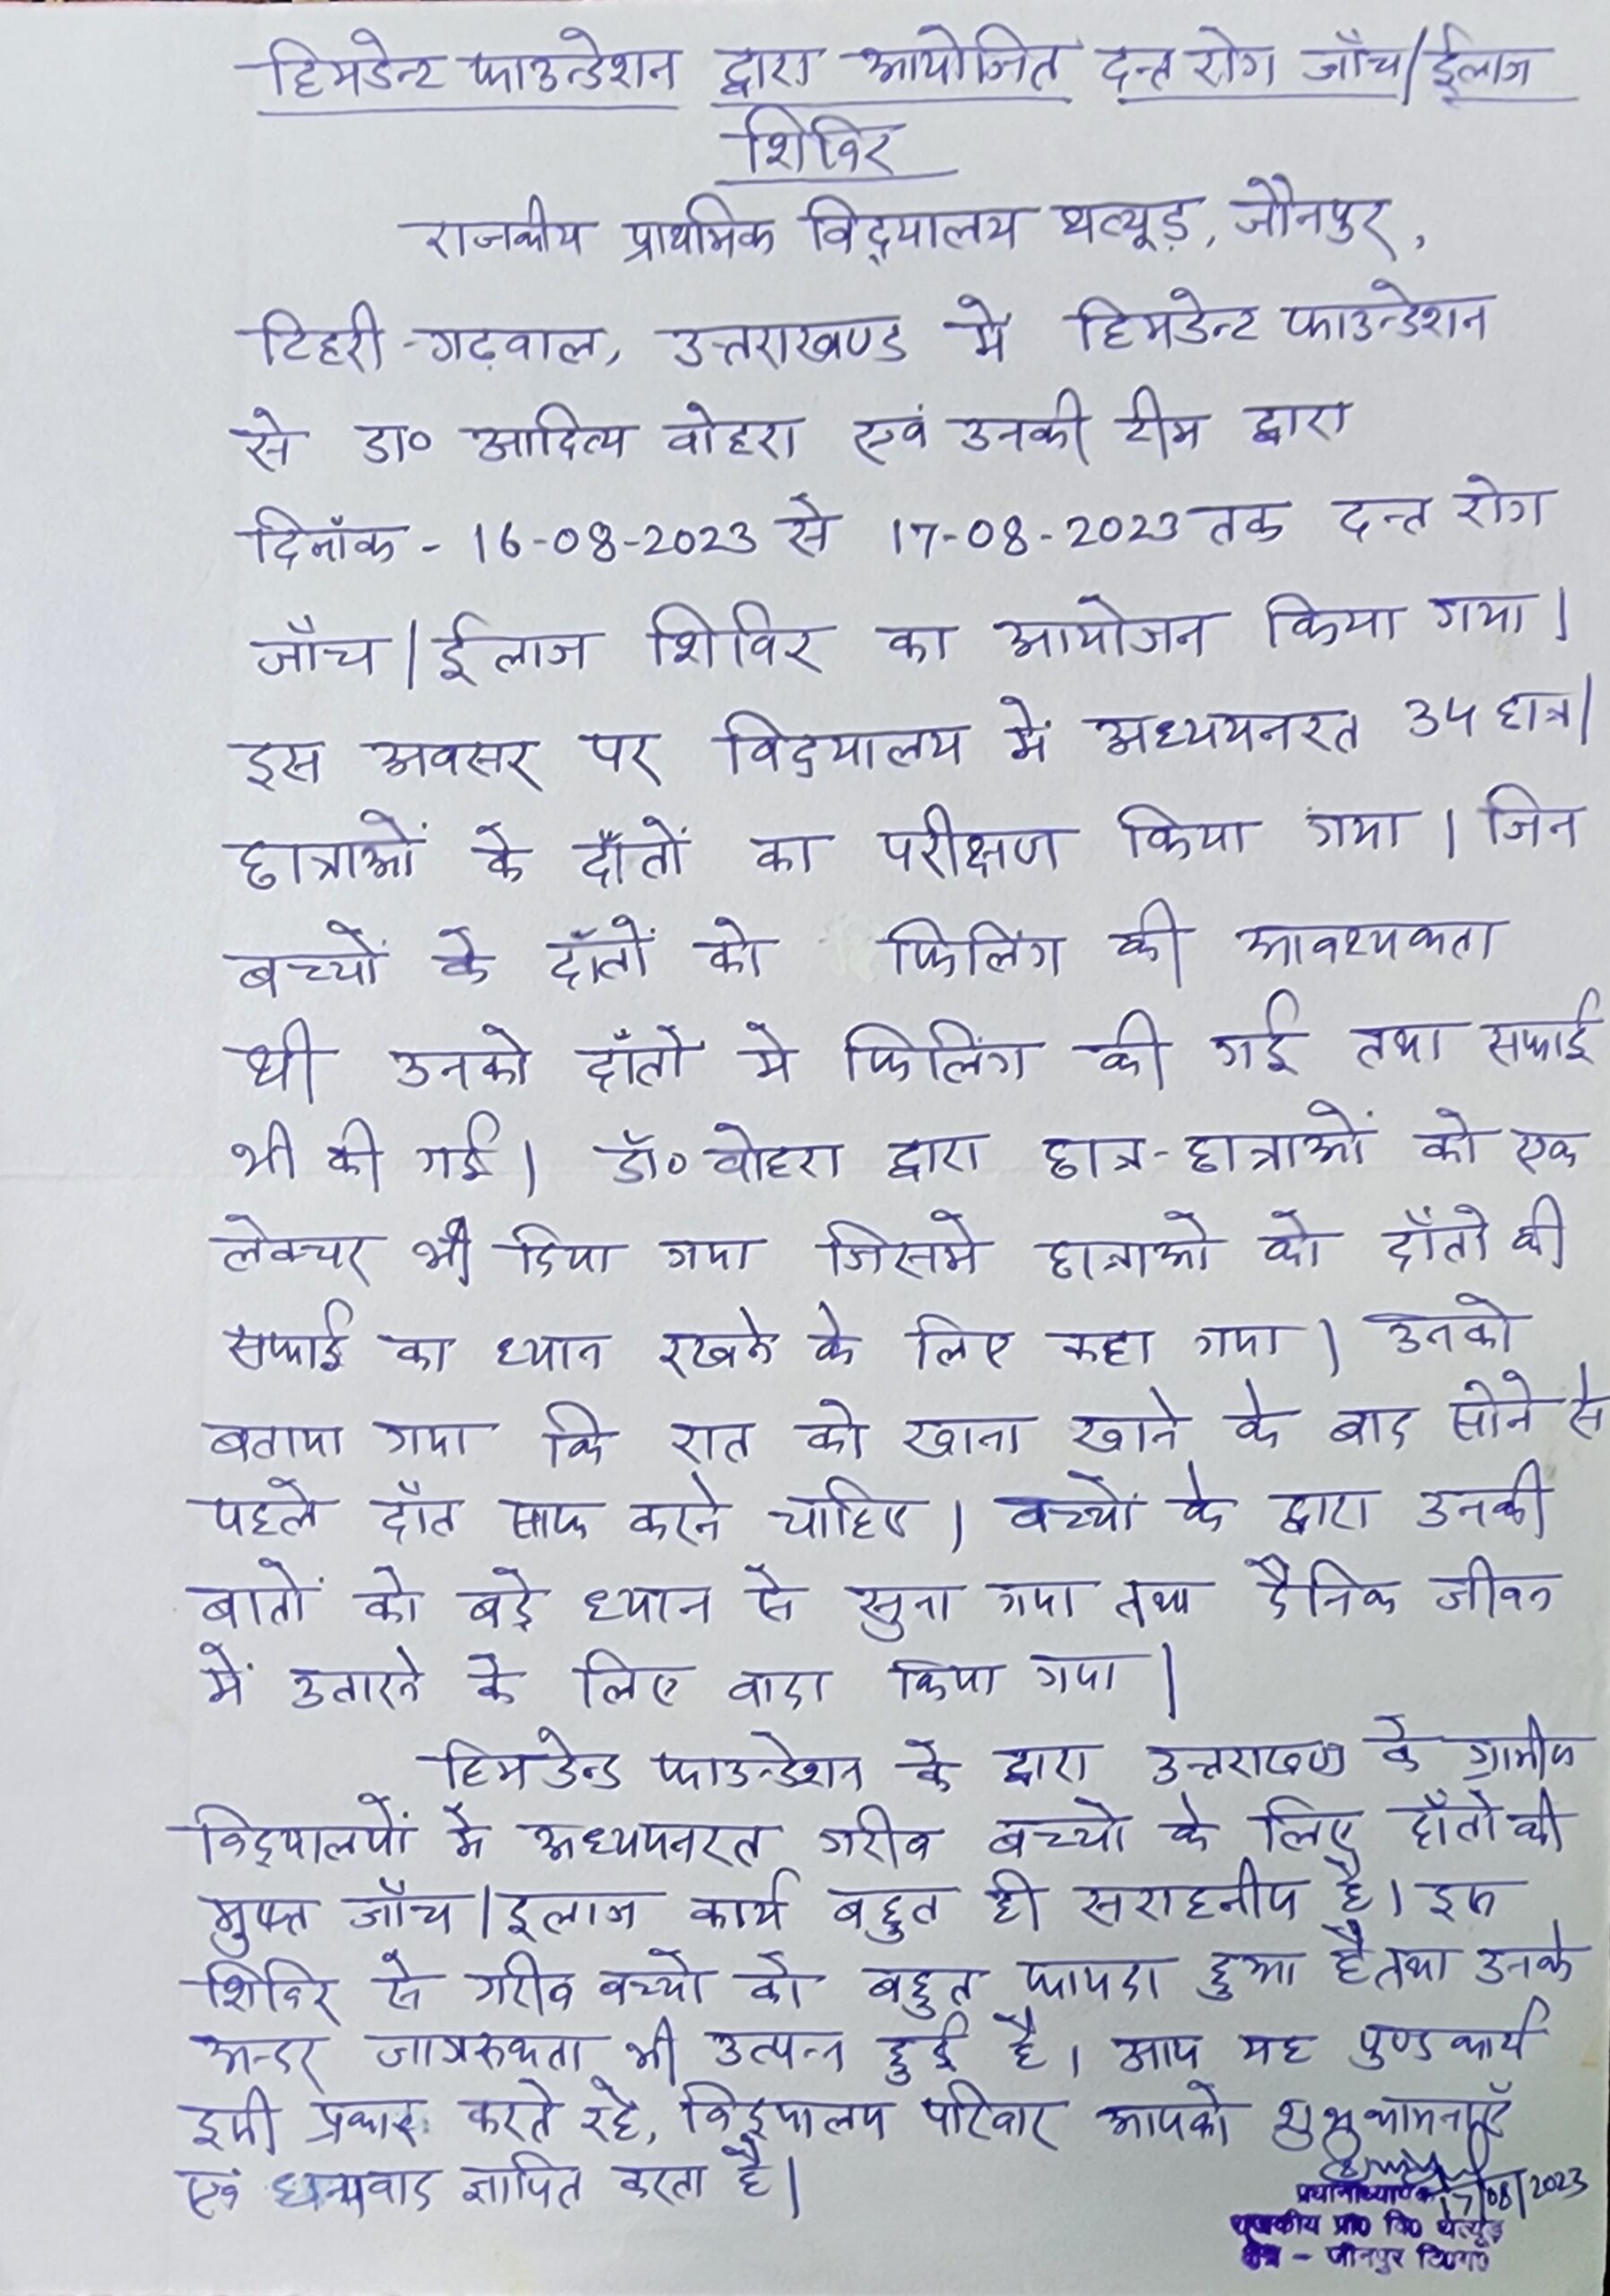 हिमडेन्ट फाउन्डेशन द्वारा आयोजित दन्त रोग जाँच/ईलाज
शिविर
राजकीय प्राथमिक विद्यालय थत्यूड़, जौनपुर,
टिहरी-गढ़वाल, उत्तराखण्ड में हिमडेन्ट फाउन्डेशन
से डा० आदित्य वोहरा एवं उनकी टीम द्वारा
दिनाँक - 16-08-2023 से 17-08-2023 तक दन्त रोग
जाँच/ईलाज शिविर का आयोजन किया गया।
इस अवसर पर विद्यालय में अध्ययनरत 34 छात्र/
छात्राओं के दाँतों का परीक्षण किया गया। जिन
बच्चों के दाँतों को फिलिंग की आवश्यकता
थी उनको दाँतों मे फिलिंग की गई तथा सफाई
भी की गई। डॉ० वोहरा द्वारा छात्र-छात्राओं को एक
लेक्चर भी दिया गया जिसमे छात्राओ को दाँतो की
सफाई का ध्यान रखने के लिए कहा गया। उनको
बताया गया कि रात को खाना खाने के बाद सोने से
पहले दाँत साफ करने चाहिए। बच्चों के द्वारा उनकी
बातों को बड़े ध्यान से सुना गया तथा दैनिक जीवन
में उतारने के लिए वादा किया गया।
हिमडेन्ड फाउन्डेशन के द्वारा उत्तराखण्ड के ग्रामीण
विद्यालयों में अध्ययनरत गरीब बच्चो के लिए दाँतो की
मुफ्त जाँच/इलाज कार्य बहुत ही सराहनीय है। इस
शिविर से गरीब बच्चो को बहुत फायदा हुआ है तथा उनके
अन्दर जागरुकता भी उत्पन्न हुई है। आप यह पुण्ड कार्य
इसी प्रकार करते रहे, विद्यालय परिवार आपको शुभकामनाएँ
एवं धन्यवाद ज्ञापित करता है।
17/08/2023
प्रधानाध्यापक
राजकीय प्रा० वि० थत्यूड़
जौनपुर टि०ग०